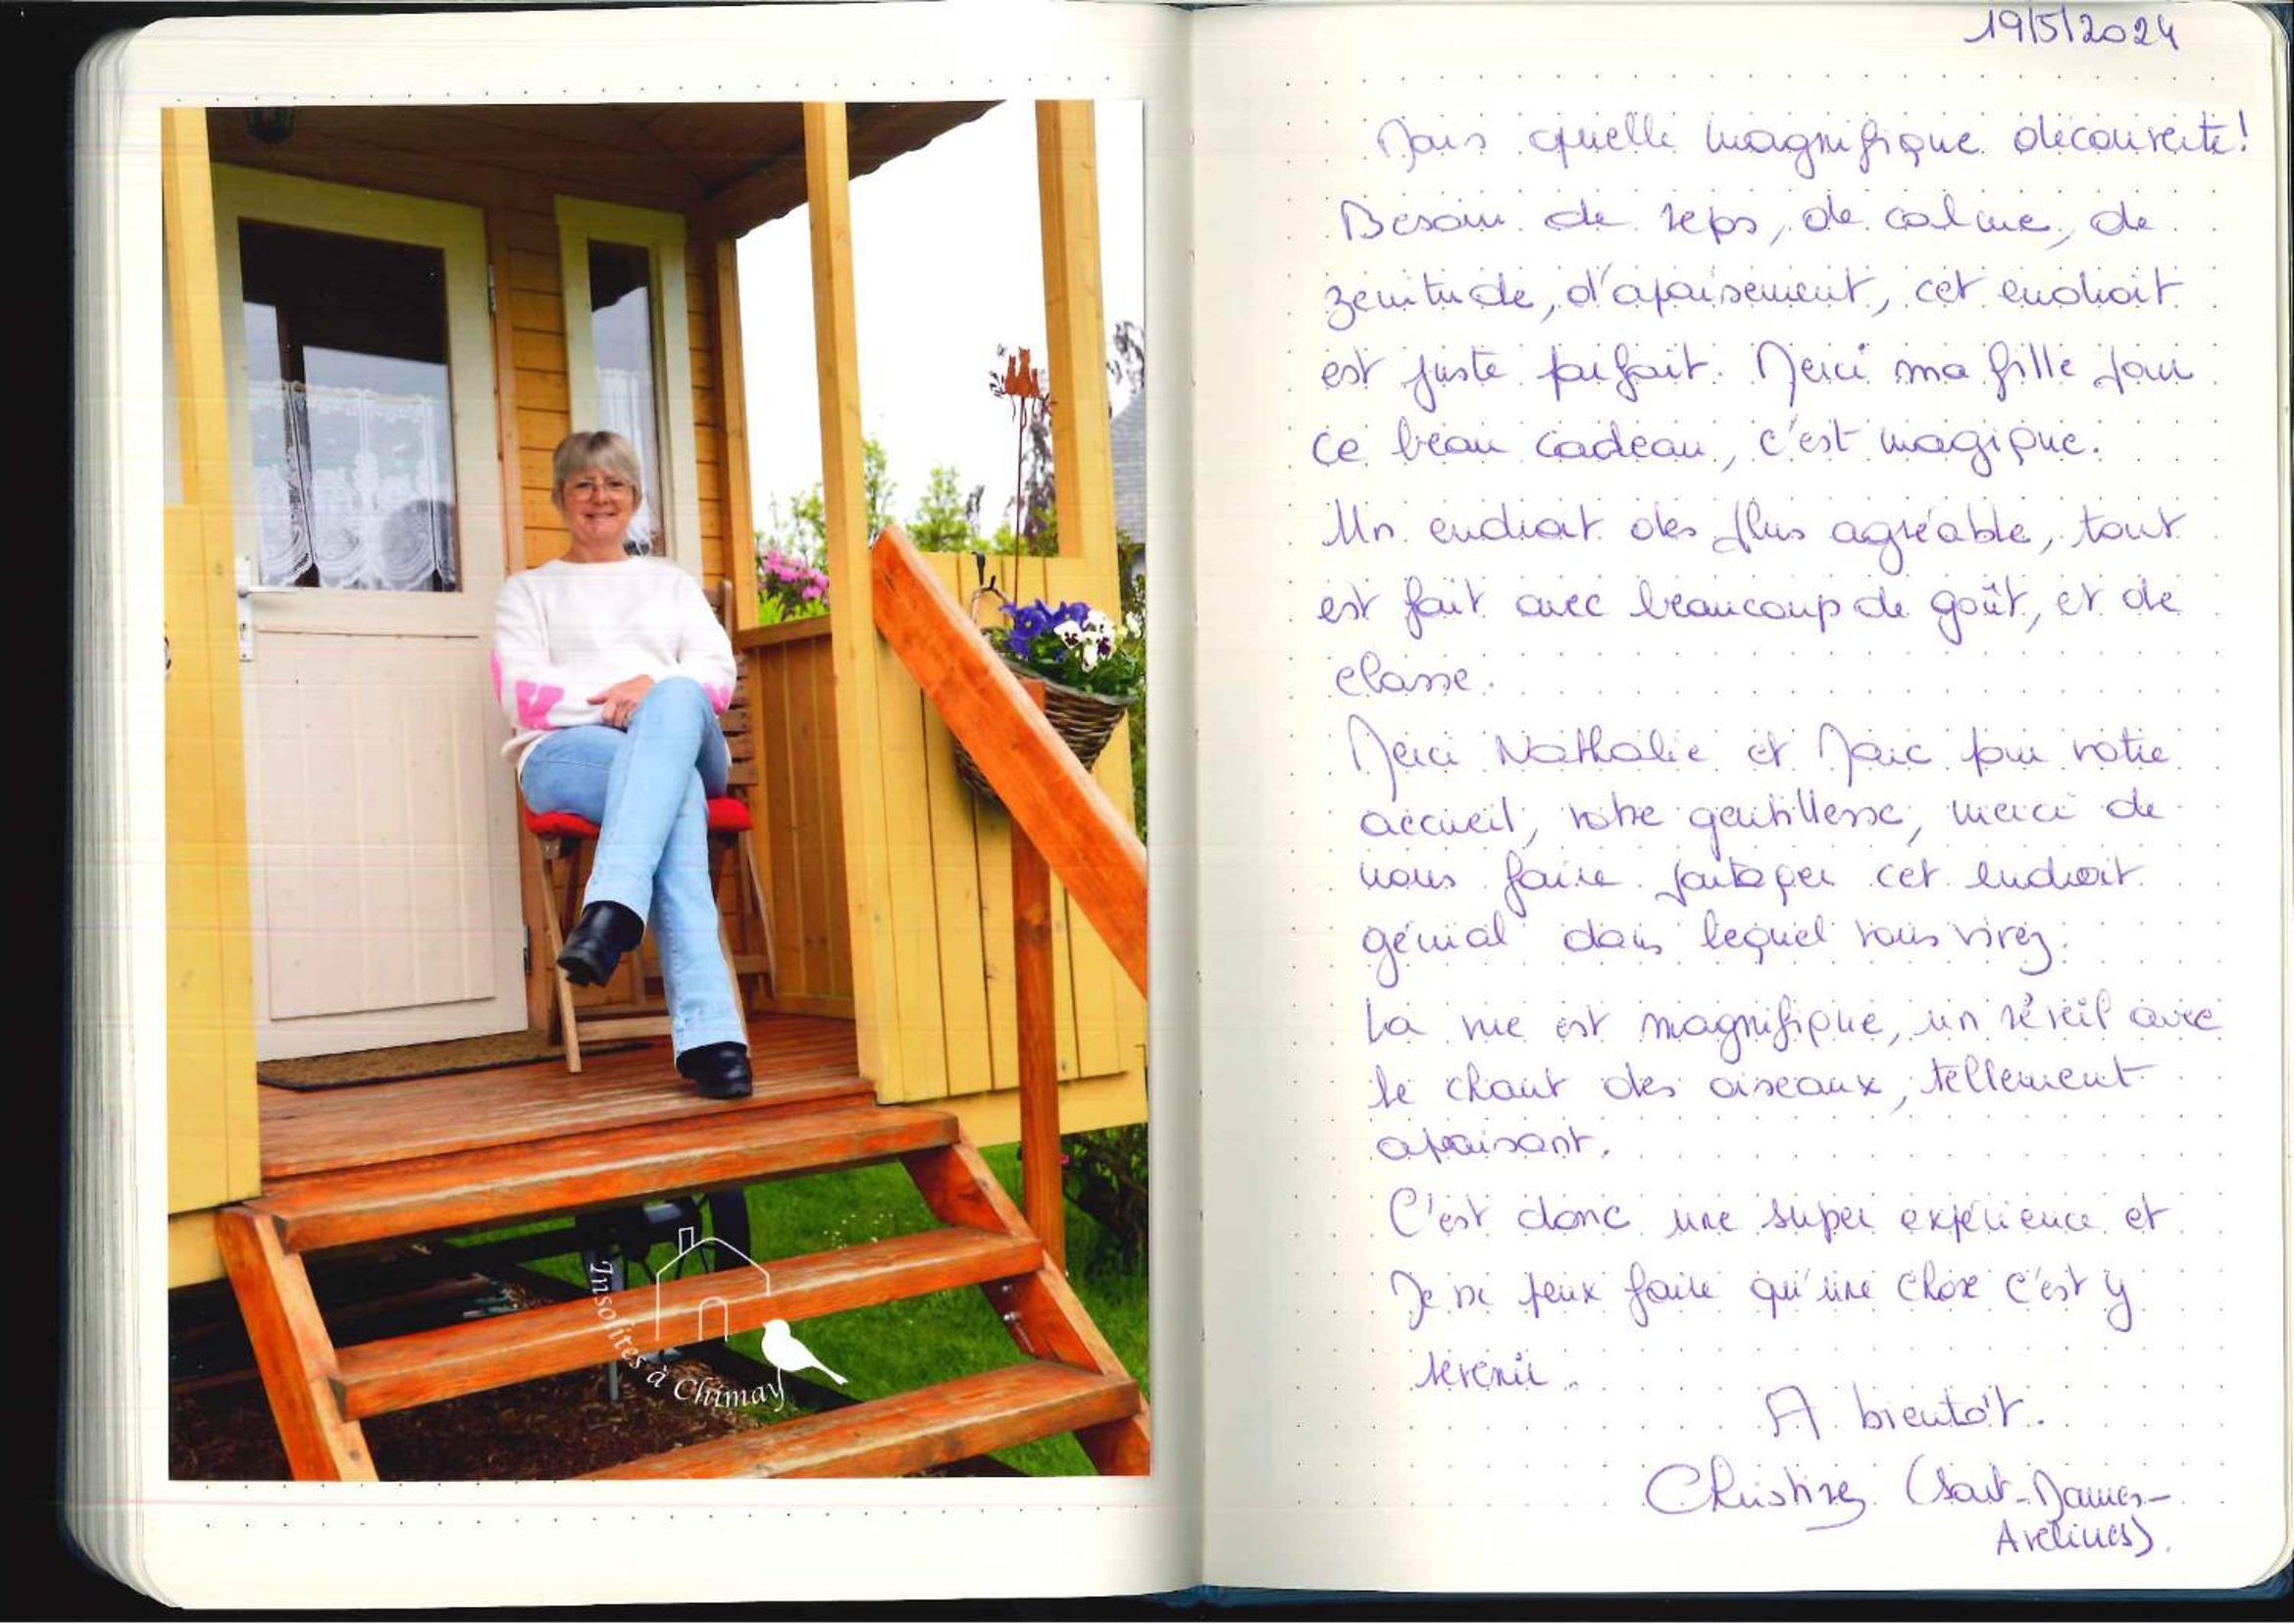 Insolites à Chimay
19/5/2024
Mais quelle magnifique découverte!
Besoin de reps, de calme, de
zenitude, d'apaisement, cet endroit
est juste parfait. Merci ma fille pour
ce beau cadeau, c'est magique.
Un endroit des plus agréable, tout
est fait avec beaucoup de goût, et de
classe.
Merci Nathalie et Marc pour votre
accueil, votre gentillesse, merci de
nous faire partager cet endroit
génial dans lequel vous vivez.
La vue est magnifique, un réveil avec
le chant des oiseaux, tellement
apaisant.
C'est donc une super expérience et
Je ne peux faire qu'une chose c'est y
revenir.
A bientôt.
Christine (Sart-Dames-
Avelines).